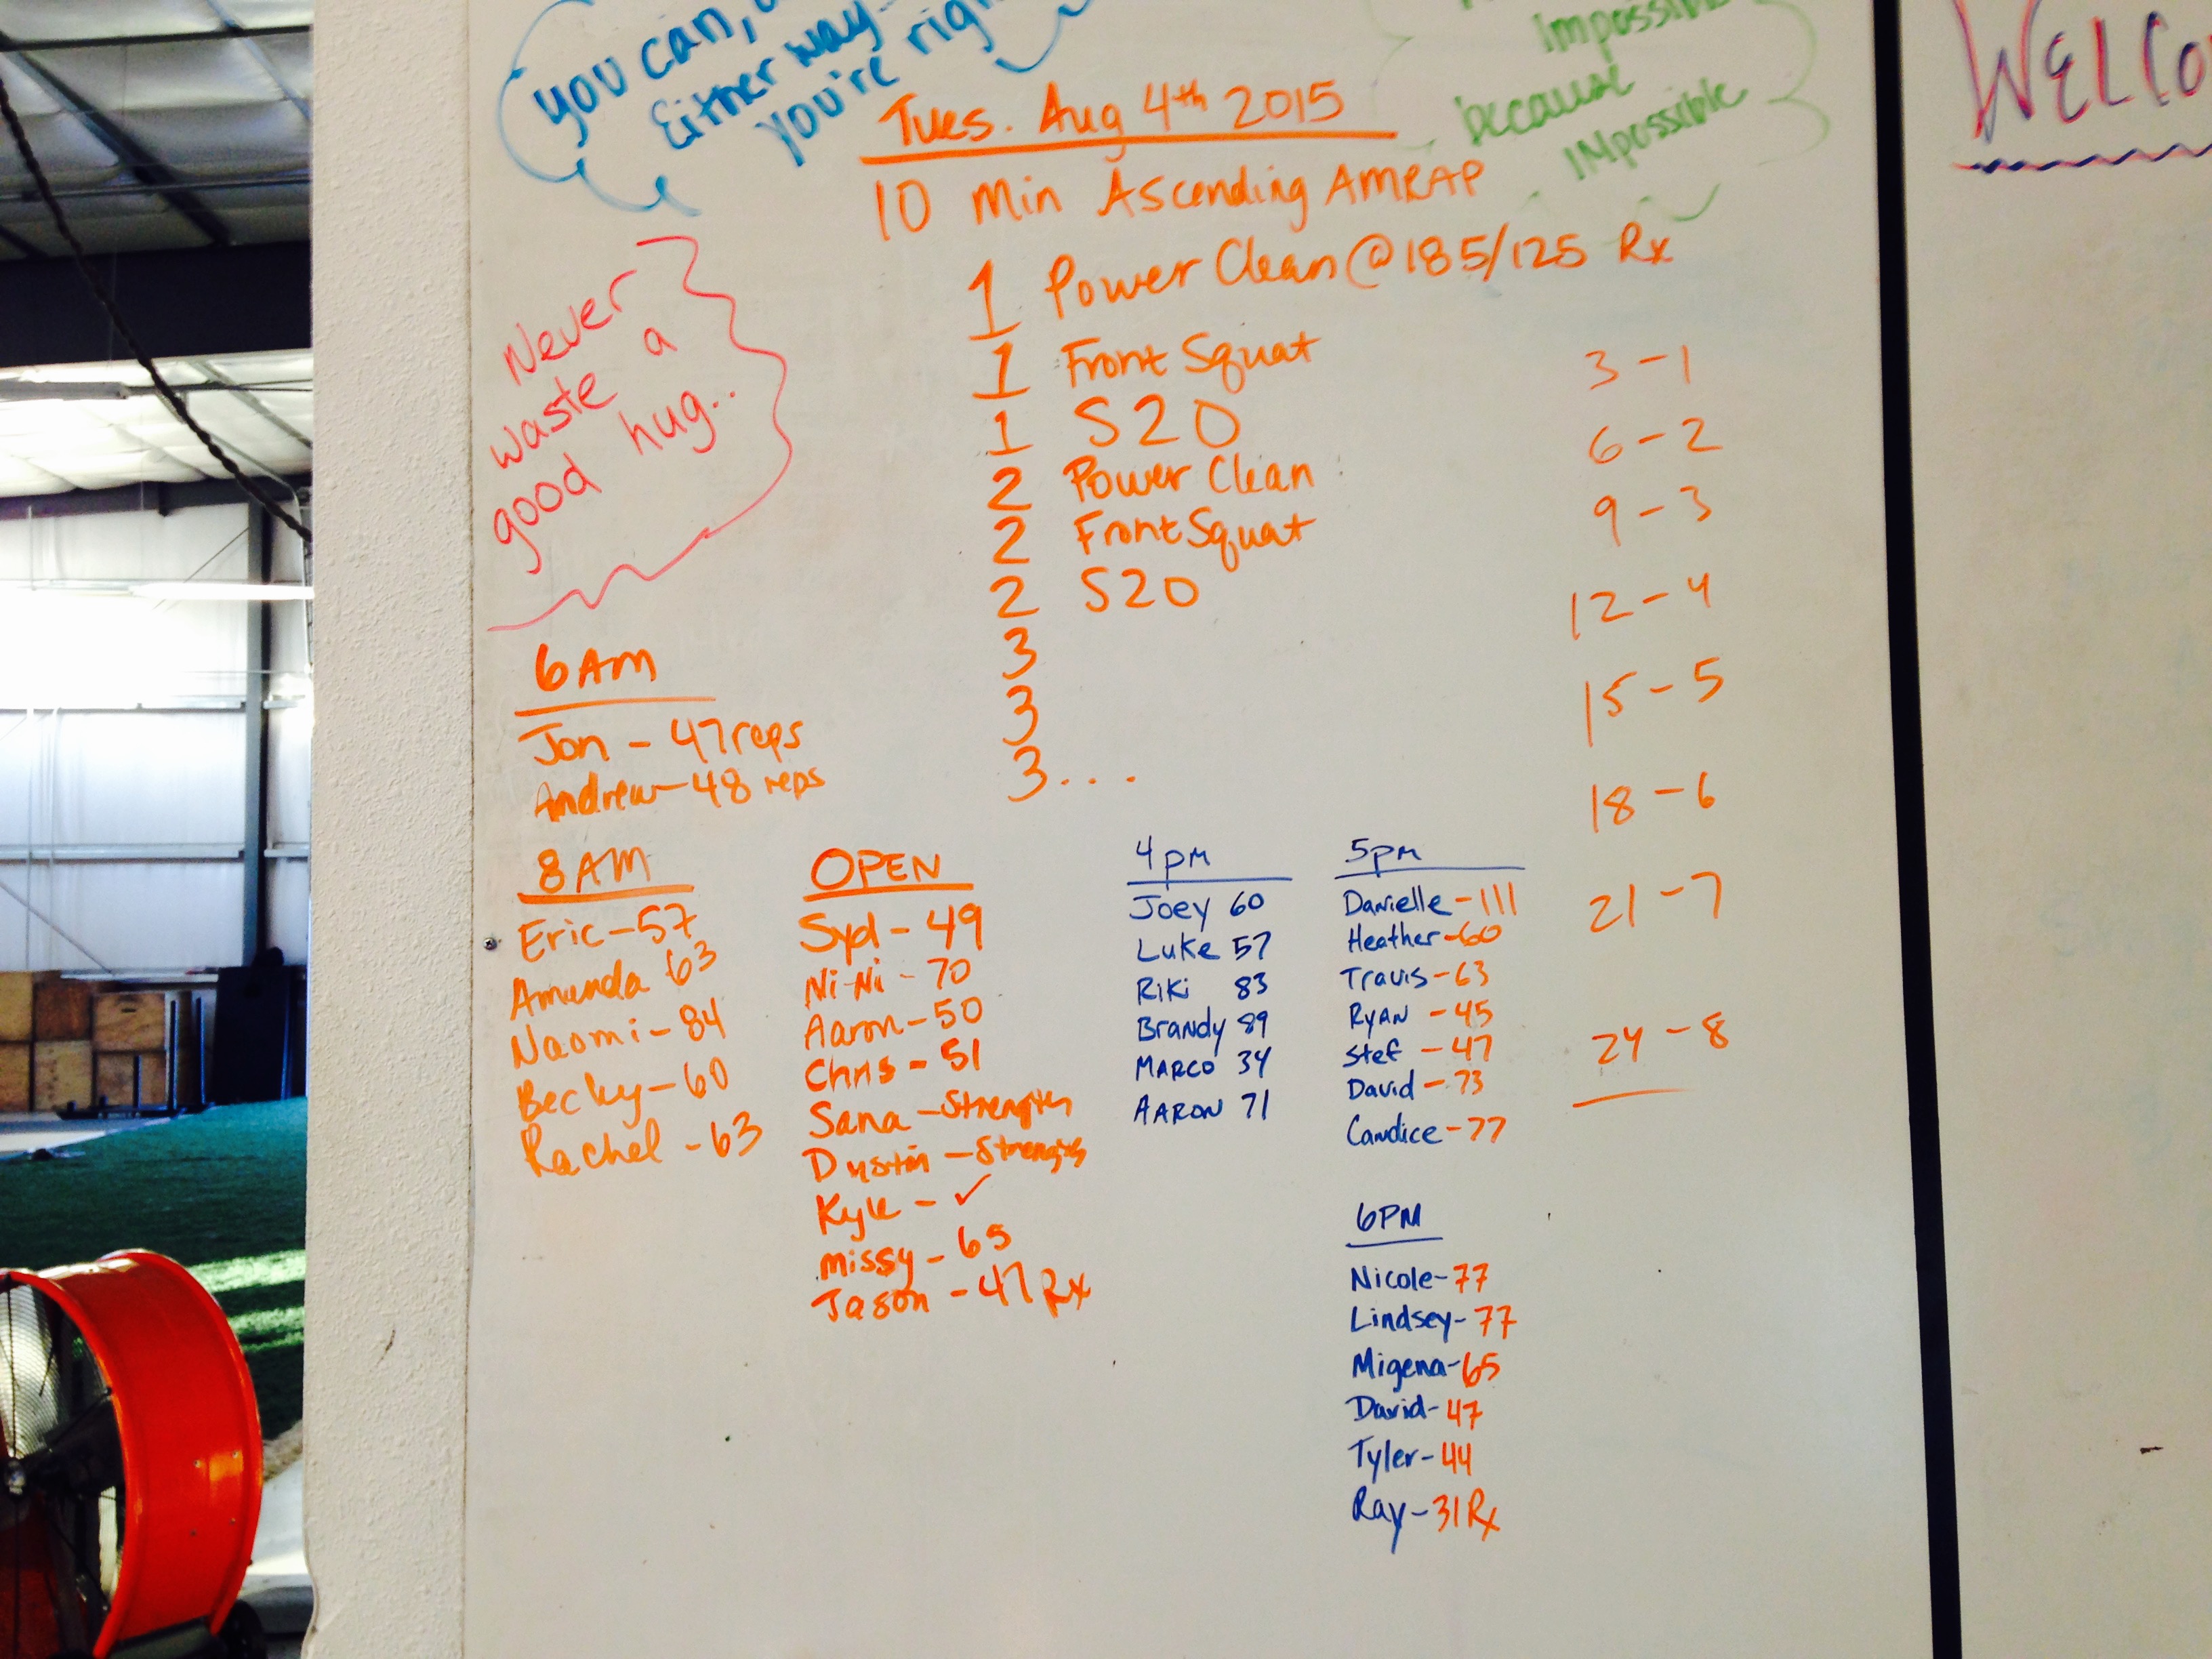 you can,
Either way
you're righ
Impossible
because
IMpossible
WELCO
Tues. Aug 4th 2015
10 Min Ascending AMRAP
1 Power Clean @ 185/125 Rx
1 Front Squat
1 S2O
2 Power Clean
2 Front Squat
2 S2O
3
3
3...
Never
waste a
good hug..
3 - 1
6 - 2
9 - 3
12 - 4
15 - 5
18 - 6
21 - 7
24 - 8
6 AM
Jon - 47 reps
Andrew - 48 reps
8 AM
Eric - 57
Amanda 63
Naomi - 84
Becky - 60
Rachel - 63
OPEN
Syd - 49
Ni-Ni - 70
Aaron - 50
Chris - 51
Sana - Strength
Dustin - Strength
Kyle - ✓
missy - 65
Jason - 47 Rx
4pm
Joey 60
Luke 57
Riki 83
Brandy 89
MARCO 34
AARON 71
5pm
Danielle - 111
Heather - 60
Travis - 63
Ryan - 45
Stef - 47
David - 73
Candice - 77
6PM
Nicole - 77
Lindsey - 77
Migena - 65
David - 47
Tyler - 44
Ray - 31 Rx